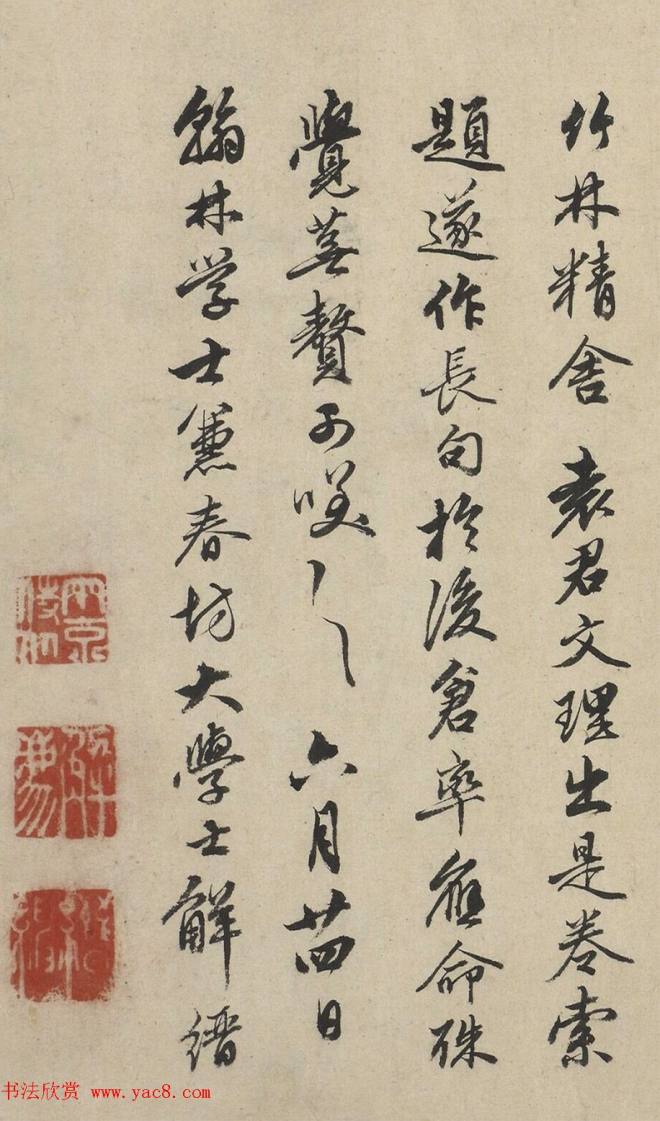 竹林精舍袁君文理出是卷索
題遂作長句於後倉率應命殊
覺蕪贅可咲〻六月廿四日
翰林学士兼春坊大學士解縉
书法欣赏 www.yac8.com